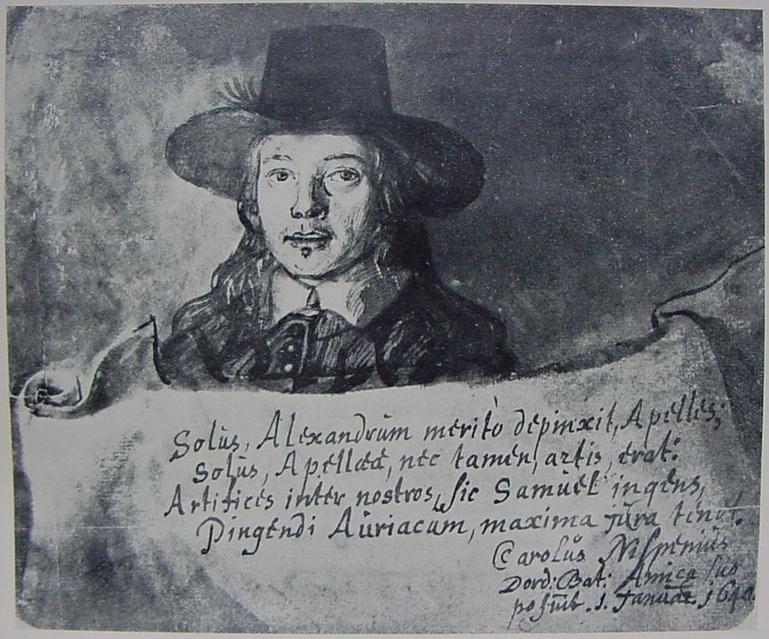 Solus, Alexandrum meritò depinxit, Apelles;
Solus, Apelleæ, nec tamen, artis, erat:
Artifices inter nostros, sic Samuel ingens,
Pingendi Auriacum, maxima jura tenet.
Carolus Nispenius
Dord: Bat: Amico suo
1. Januar. 164